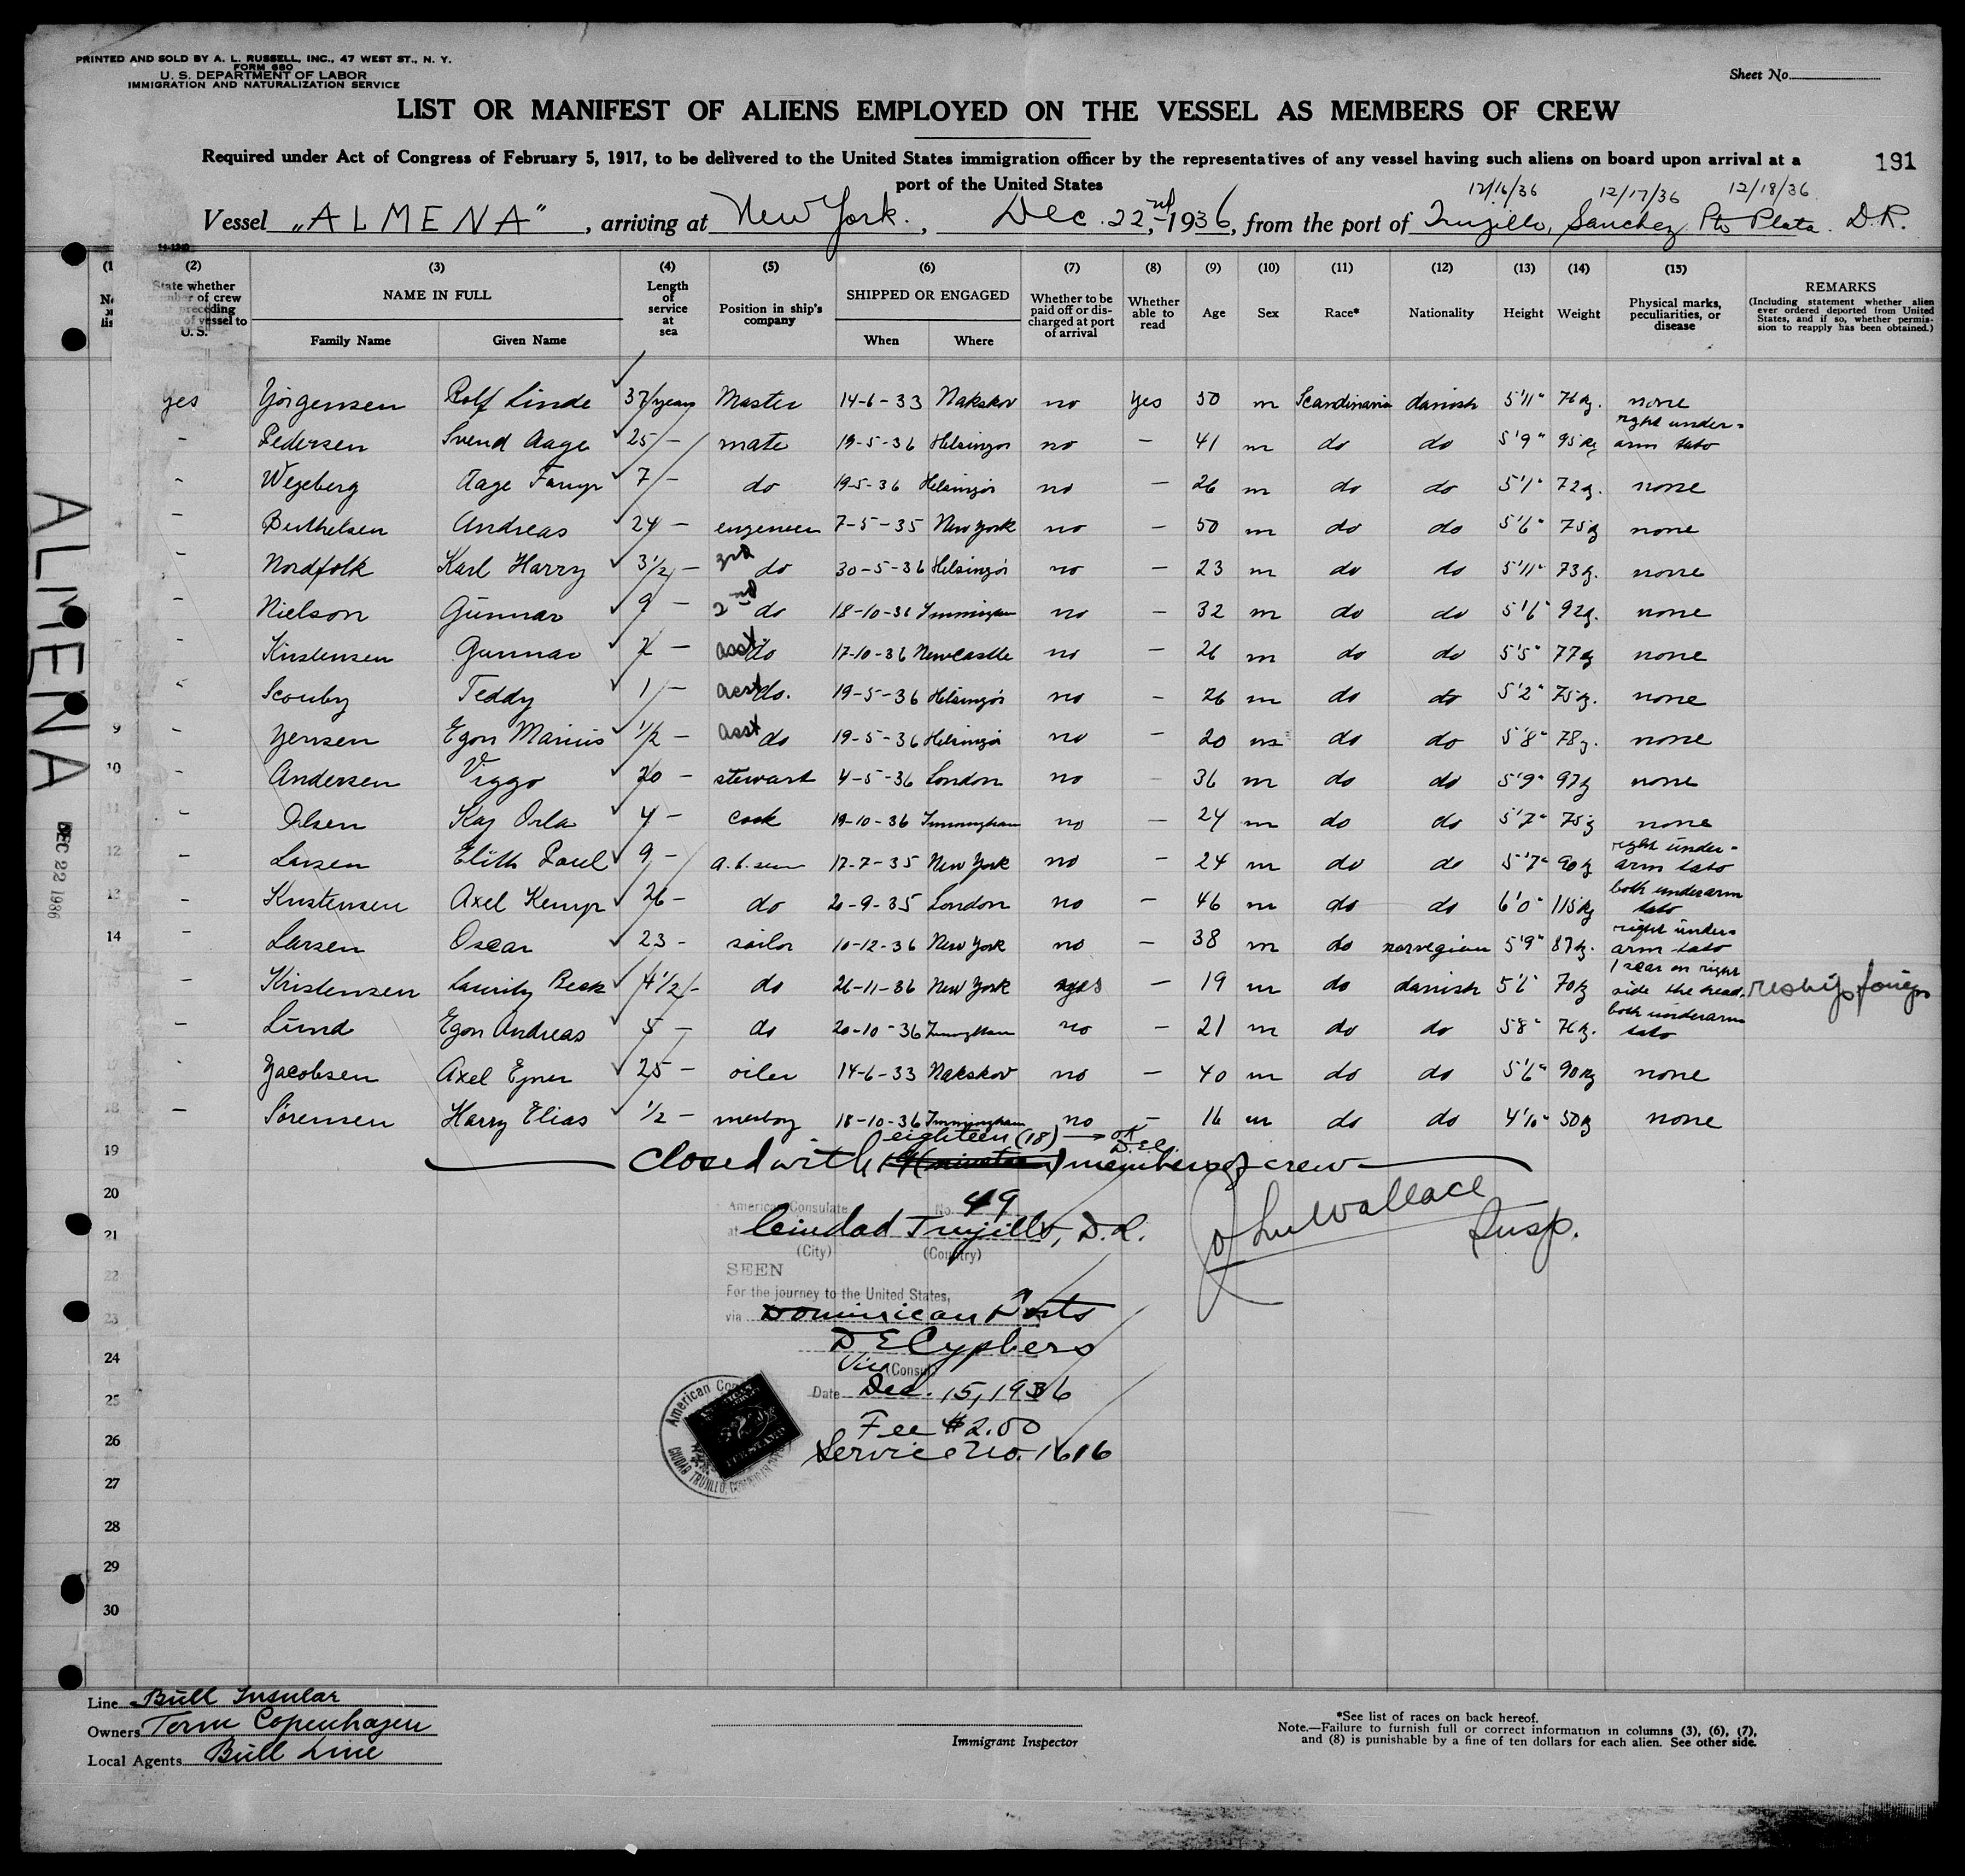 PRINTED AND SOLD BY A. L. RUSSELL, INC., 47 WEST ST., N. Y.
FORM 680
U. S. DEPARTMENT OF LABOR
IMMIGRATION AND NATURALIZATION SERVICE
Sheet No.
LIST OR MANIFEST OF ALIENS EMPLOYED ON THE VESSEL AS MEMBERS OF CREW
Required under Act of Congress of February 5, 1917, to be delivered to the United States immigration officer by the representatives of any vessel having such aliens on board upon arrival at a
port of the United States
191
12/16/36 12/17/36 12/18/36
Vessel "ALMENA", arriving at New York, Dec. 22nd, 1936, from the port of Trujillo, Sanchez, Pto Plata. D.R.
(1 (2) (3) (4) (5) (6) (7) (8) (9) (10) (11) (12) (13) (14) (15)
State whether member of crew preceding voyage of vessel to U. S. NAME IN FULL Family Name Given Name Length of service at sea Position in ship's company SHIPPED OR ENGAGED When Where Whether to be paid off or discharged at port of arrival Whether able to read Age Sex Race* Nationality Height Weight Physical marks, peculiarities, or disease REMARKS (Including statement whether alien ever ordered deported from United States, and if so, whether permission to reapply has been obtained.)
yes Yörgensen Rolf Linde 37 years Master 14-6-33 Nakskov no yes 50 m Scandinavia danish 5'11" 76 kg. none
- Pedersen Svend Aage 25 - mate 19-5-36 Helsingör no - 41 m do do 5'9" 95 kg right under-arm tato
3 - Wegeberg Aage 7 - do 19-5-36 Helsingör no - 26 m do do 5'1" 72 none
4 - Berthelsen Andreas 24 - engeneer 7-5-35 New York no - 50 m do do 5'6" 75 none
- Nordfolk Karl Harry 3 1/2 - 3rd do 30-5-36 Helsingör no - 23 m do do 5'11" 73 none
- Nielson Gunnar 9 - 2nd do 18-10-36 Immingham no - 32 m do do 5'6" 92 none
7 - Kristensen Gunnar 2 - asst do 17-10-36 Newcastle no - 26 m do do 5'5" 77 none
8 - Scouby Teddy 1 - asst do. 19-5-36 Helsingör no - 26 m do do 5'2" 75 none
9 - Yensen Egon Marius 1/2 - asst do 19-5-36 Helsingör no - 20 m do do 5'8" 78 none
10 - Andersen Viggo 20 - stewart 4-5-36 London no - 36 m do do 5'9" 97 none
11 - Olsen Kaj Orla 4 - cook 19-10-36 Immingham no - 24 m do do 5'7" 75 none
12 - Larsen Elith Poul 9 - 17-7-35 New York no - 24 m do do 5'7" 90 right under-arm tato
13 - Kristensen Axel Kemp 26 - do 20-9-35 London no - 46 m do do 6'0" 115 kg both underarm tato
14 - Larsen Oscar 23 - sailor 10-12-36 New York no - 38 m do norvegian 5'9" 87 right under-arm tato
- Kristensen Lauritz Beck 4 1/2 - do 26-11-36 New York yes - 19 m do danish 5'6 70 1 scar on right side the head. reship foreign
- Lund Egon Andreas 5 - do 20-10-36 Immingham no - 21 m do do 5'8" 76 both underarm tato
- Yacobsen Axel Ejner 25 - oiler 14-6-33 Nakskov no - 40 m do do 5'6" 90 kg none
18 - Sörensen Harry Elias 1/2 - messboy 18-10-36 Immingham no - 16 m do do 4'10" 50 none
eighteen (18) → OK D.E.C.
19 Closed with members of crew
20 American Consulate No. 49
21 at Ciudad Trujillo, D.R.
(City) (Country)
John Wallace
Insp.
22 SEEN
For the journey to the United States,
23 via Dominican Ports
24 D E Cyphers
Vice (Consul)
25 Date Dec. 15, 1936
Fee $2.00
26 Service No. 1616
American Con
CIUDAD TRUJILLO,
27
28
29
30
ALMENA
DEC 22 1936
Line Bull Insular
Owners Torm Copenhagen
Local Agents Bull Line
Immigrant Inspector
*See list of races on back hereof.
Note.—Failure to furnish full or correct information in columns (3), (6), (7),
and (8) is punishable by a fine of ten dollars for each alien. See other side.